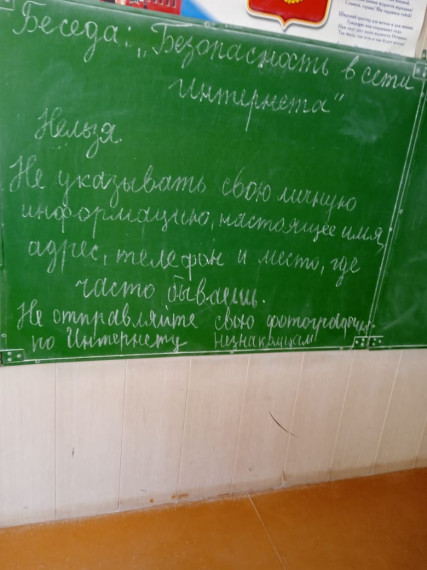 Беседа: „Безопасность в сети
интернета"
Нельзя.
Не указывать свою личную
информацию, настоящее имя,
адрес, телефон и место, где
часто бываеш.
Не отправляйте свою фотографию
по Интернету незнакомцам